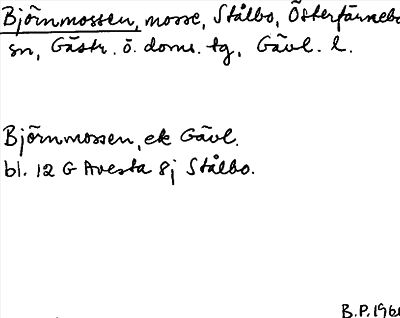 Björnmossen, mosse, Stålbo, Österfärnebo
sn, Gästr. ö. doms. tg, Gävl. l.
Björnmossen, ek Gävl.
bl. 12 G Avesta 8j Stålbo.
B.P. 196